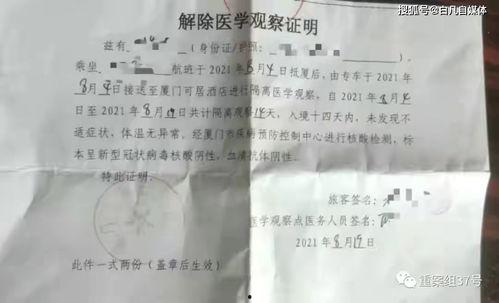 搜狐号@白凡自媒体
解除医学观察证明
兹有 (身份证/护照: ),
乘坐 航班于2021年8月4日抵厦后,由专车于2021年
8月4日接送至厦门可居酒店进行隔离医学观察,自2021年8月4
日至2021年8月 日共计隔离观察14天,入境十四天内,未发现不
适症状,体温无异常,经厦门市疾病预防控制中心进行核酸检测,标
本呈新型冠状病毒核酸阴性,血清抗体阴性。
特此证明。
旅客签名:
医学观察点医务人员签名:
2021年8月 日
此件一式两份(盖章后生效)
重案组37号